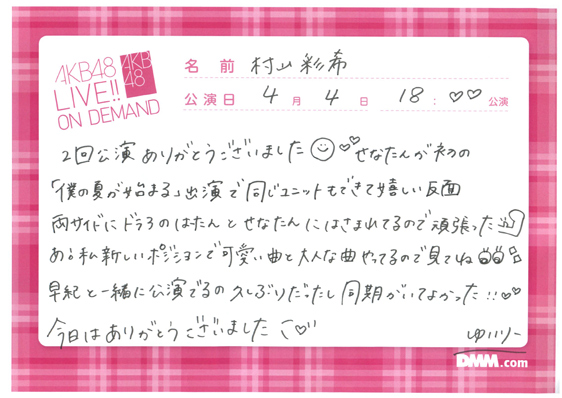 AKB48
LIVE!!
ON DEMAND
AKB
48
名前 村山彩希
公演日 4月4日 18:♡♡公演
2回公演ありがとうございました☺♡♡せなたんが初の
「僕の夏が始まる」出演で同じユニットもできて嬉しい反面
両サイドにドラ3のはたんとせなたんにはさまれてるので頑張った
あ!私新しいポジションで可愛い曲と大人な曲やってるので見てね
早紀と一緒に公演でるの久しぶりだったし同期がいてよかった!!♡♡
今日はありがとうございました♡
ゆいりー
DMM.com